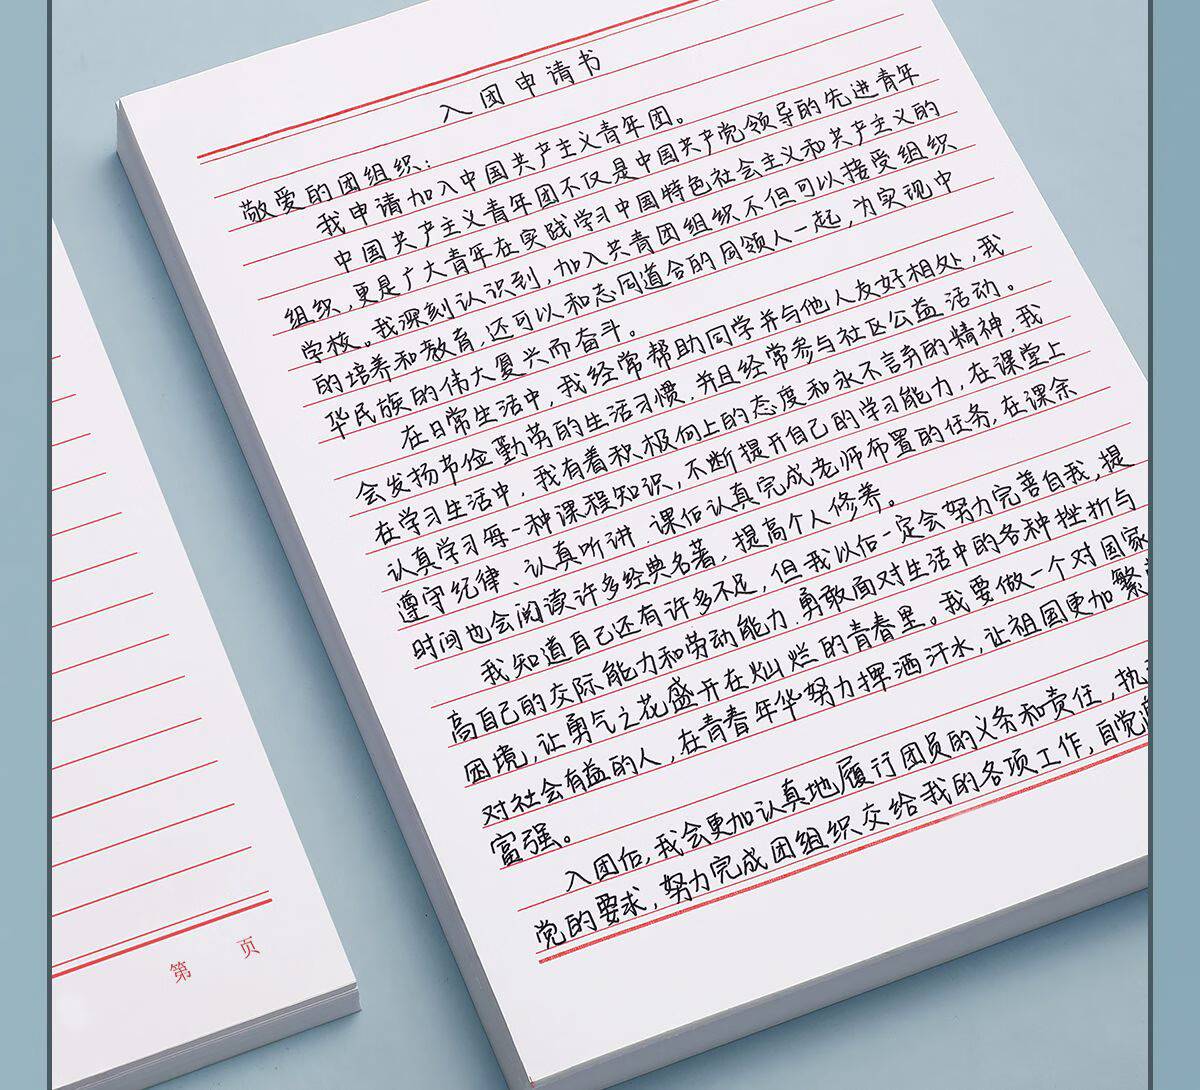 入团申请书
敬爱的团组织：
我申请加入中国共产主义青年团。
中国共产主义青年团不仅是中国共产党领导的先进青年
组织，更是广大青年在实践学习中国特色社会主义和共产主义的
学校。我深刻认识到，加入共青团组织不但可以接受组织
的培养和教育，还可以和志同道合的同领人一起，为实现中
华民族的伟大复兴而奋斗。
在日常生活中，我经常帮助同学并与他人友好相处，我
会发扬书俭勤劳的生活习惯，并且经常参与社区公益活动。
在学习生活中，我有着积极向上的态度和永不言弃的精神，我
认真学习每一种课程知识，不断提升自己的学习能力，在课堂上
遵守纪律、认真听讲，课后认真完成老师布置的任务，在课余
时间也会阅读许多经典名著，提高个人修养。
我知道自己还有许多不足，但我以后一定会努力完善自我，提
高自己的交际能力和劳动能力，勇敢面对生活中的各种挫折与
困境，让勇气之花盛开在灿烂的青春里。我要做一个对国家
对社会有益的人，在青春年华努力挥洒汗水，让祖国更加繁
富强。
入团后，我会更加认真地履行团员的义务和责任，执
党的要求，努力完成团组织交给我的各项工作，自觉
第 页